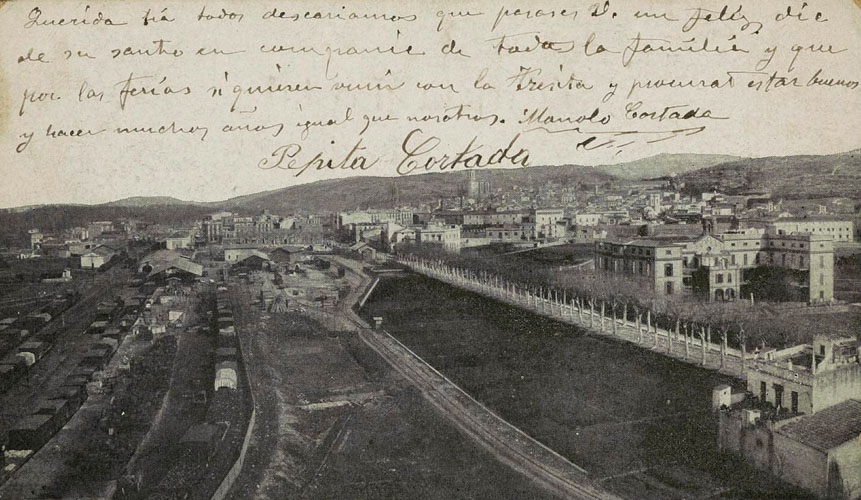 Querida tia todos deseariamos que pasases V. un feliz dia
de su santo en compania de toda la familia y que
por las ferias si quieren venir con la Tresita y procurar estar buenos
y hacer muchos años igual que nosotros. Manolo Cortada
Pepita Cortada